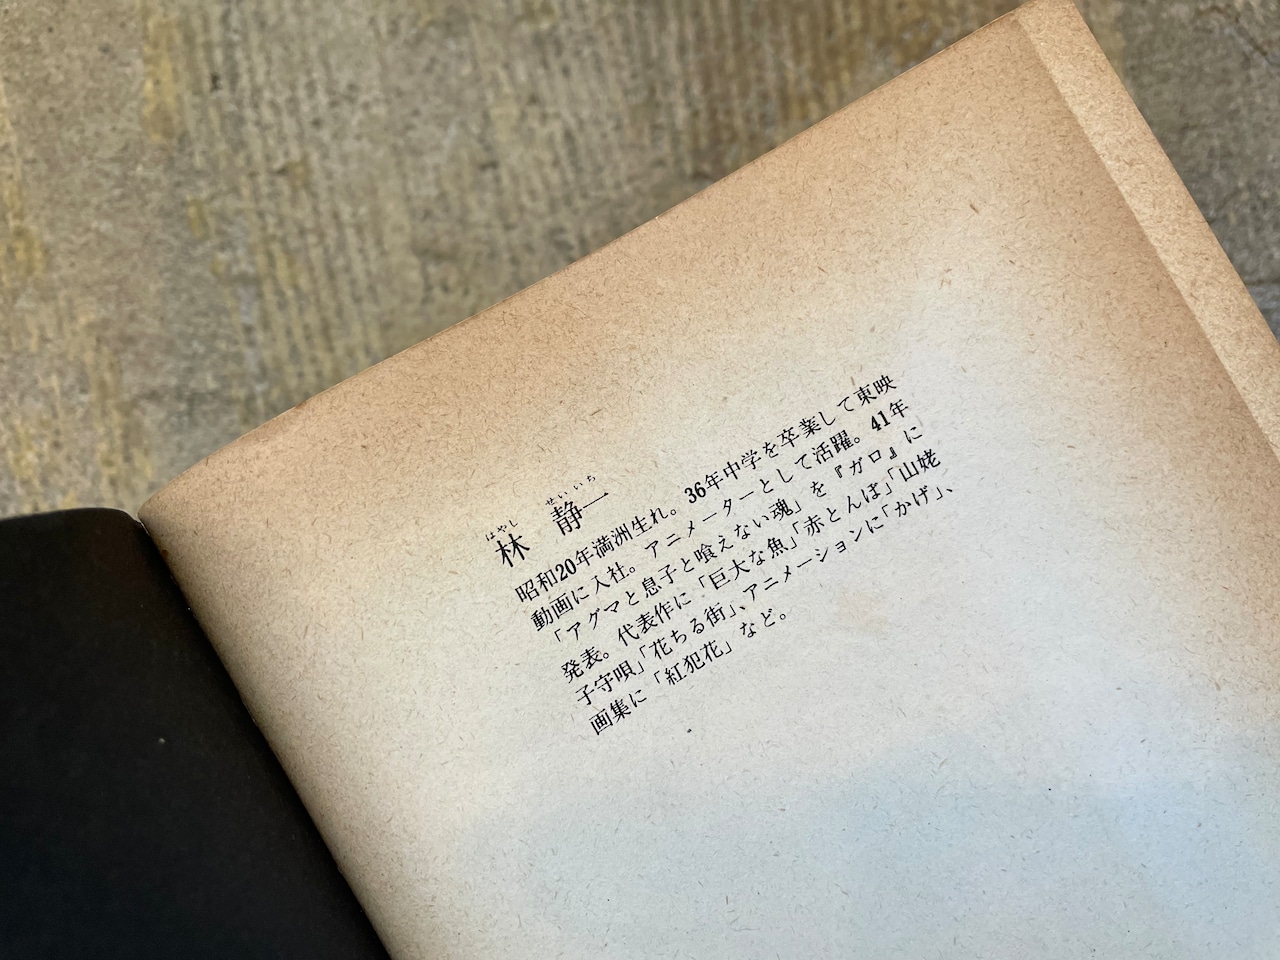 はやし せいいち
林 静一
昭和20年満洲生れ。36年中学を卒業して東映
動画に入社。アニメーターとして活躍。41年
「アグマと息子と喰えない魂」を『ガロ』に
発表。代表作に「巨大な魚」「赤とんぼ」「山姥
子守唄」「花ちる街」、アニメーションに「かげ」、
画集に「紅犯花」など。